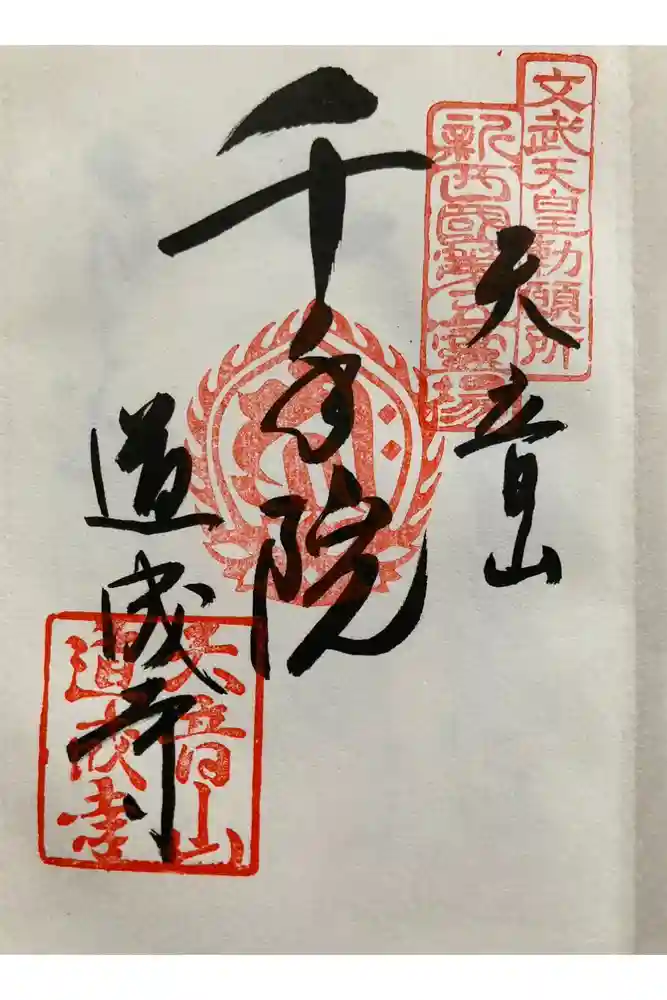 文武天皇勅願所
新西國第五霊場
天音山
千手院
道成寺
天音山
道成寺